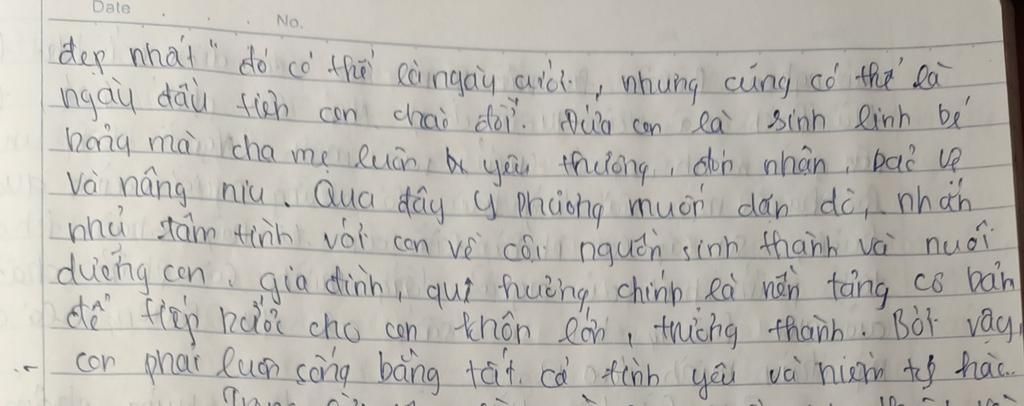 Date
No.
đẹp nhất" đó có thể là ngày cưới, nhưng cũng có thể là
ngày đầu tiên con chào đời. Đứa con là sinh linh bé
bỏng mà cha mẹ luôn yêu thương, đón nhận, bảo vệ
và nâng niu. Qua đây Y Phương muốn dặn dò, nhắn
nhủ tâm tình với con về cội nguồn sinh thành và nuôi
dưỡng con. gia đình, quê hương chính là nền tảng cơ bản
để tiếp bước cho con khôn lớn, trưởng thành. Bởi vậy,
con phải luôn sống bằng tất cả tình yêu và niềm tự hào.